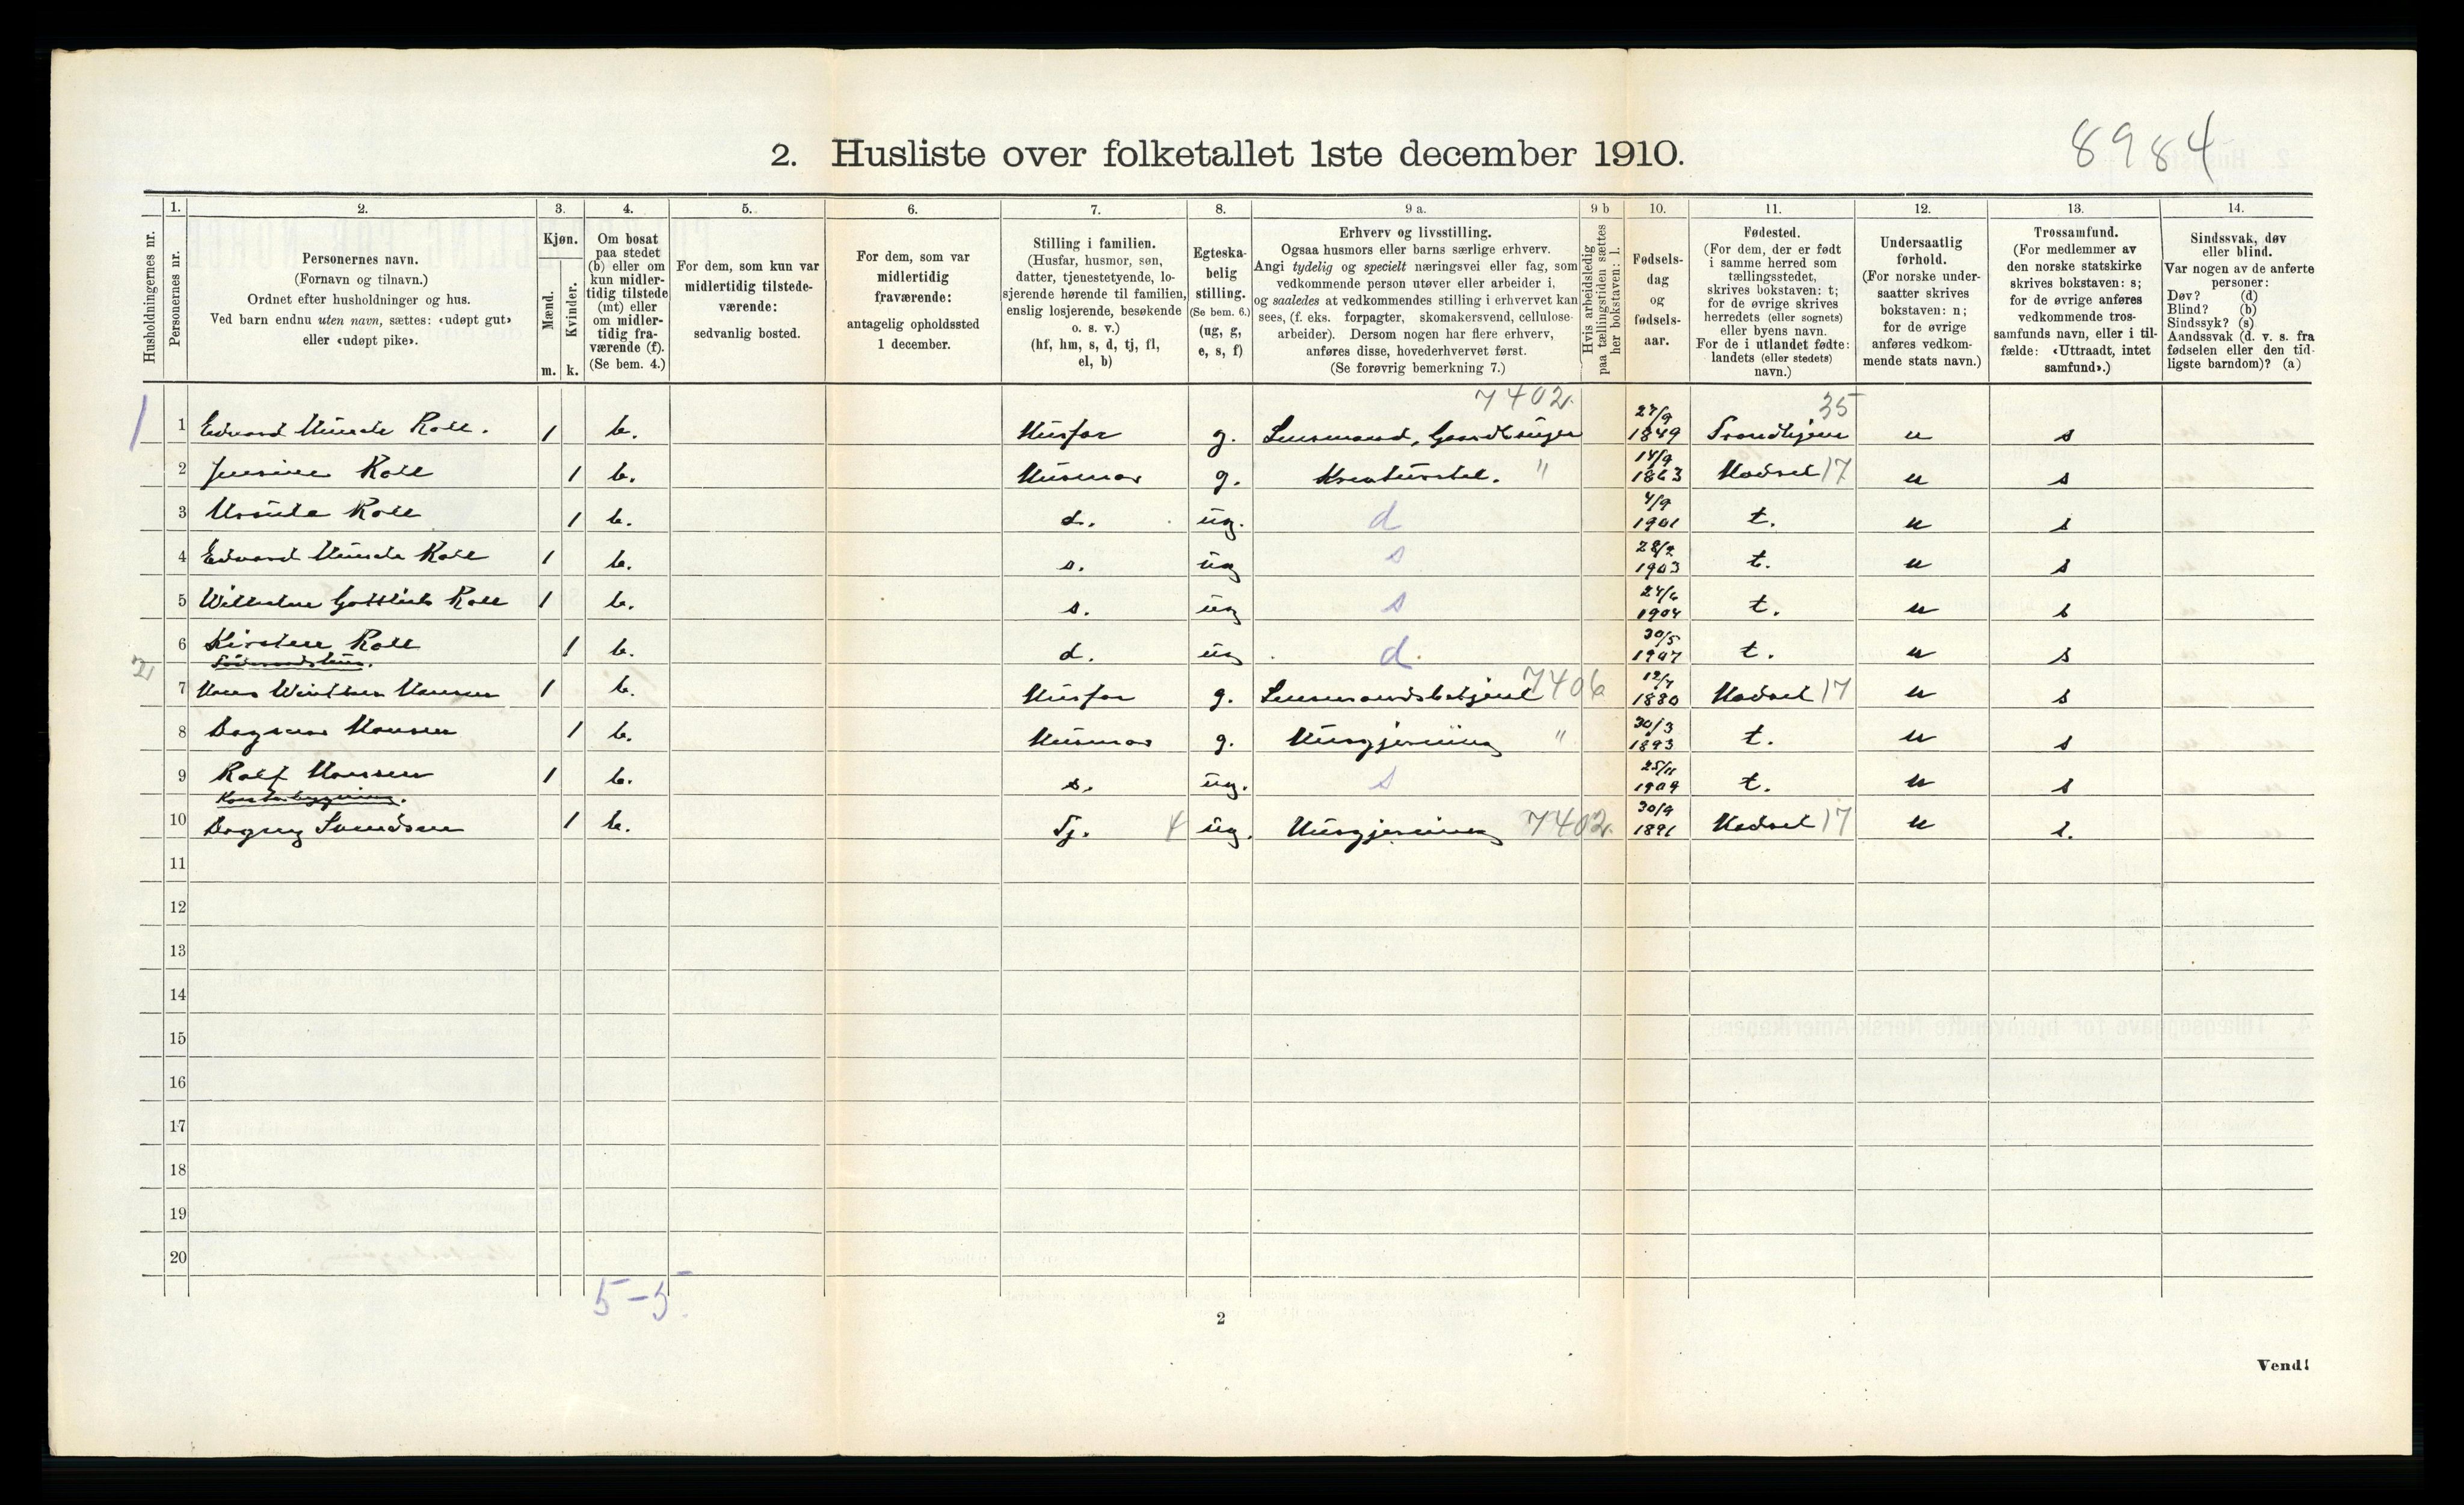 8984
2. Husliste over folketallet 1ste december 1910.
Husholdningernes nr.
1. Personernes nr.
2. Personernes navn.
(Fornavn og tilnavn.)
Ordnet efter husholdninger og hus.
Ved barn endnu uten navn, sættes: «udøpt gut»
eller «udøpt pike».
3. Kjøn.
Mænd. m.
Kvinder. k.
4. Om bosat
paa stedet
(b) eller om
kun midler-
tidig tilstede
(mt) eller
om midler-
tidig fra-
værende (f).
(Se bem. 4.)
5. For dem, som kun var
midlertidig tilstede-
værende:
sedvanlig bosted.
6. For dem, som var
midlertidig
fraværende:
antagelig opholdssted
1 december.
7. Stilling i familien.
(Husfar, husmor, søn,
datter, tjenestetyende, lo-
sjerende hørende til familien,
enslig losjerende, besøkende
o. s. v.)
(hf, hm, s, d, tj, fl,
el, b)
8. Egteska-
belig
stilling.
(Se bem. 6.)
(ug, g,
e, s, f)
9 a. Erhverv og livsstilling.
Ogsaa husmors eller barns særlige erhverv.
Angi tydelig og specielt næringsvei eller fag, som
vedkommende person utøver eller arbeider i,
og saaledes at vedkommendes stilling i erhvervet kan
sees, (f. eks. forpagter, skomakersvend, cellulose-
arbeider). Dersom nogen har flere erhverv,
anføres disse, hovederhvervet først.
(Se forøvrig bemerkning 7.)
9 b Hvis arbeidsledig
paa tællingstiden sættes
her bokstaven: l.
10. Fødsels-
dag
og
fødsels-
aar.
11. Fødested.
(For dem, der er født
i samme herred som
tællingsstedet,
skrives bokstaven: t;
for de øvrige skrives
herredets (eller sognets)
eller byens navn.
For de i utlandet fødte:
landets (eller stedets)
navn.)
12. Undersaatlig
forhold.
(For norske under-
saatter skrives
bokstaven: n;
for de øvrige
anføres vedkom-
mende stats navn.)
13. Trossamfund.
(For medlemmer av
den norske statskirke
skrives bokstaven: s;
for de øvrige anføres
vedkommende tros-
samfunds navn, eller i til-
fælde: «Uttraadt, intet
samfund».)
14. Sindssvak, døv
eller blind.
Var nogen av de anførte
personer:
Døv? (d)
Blind? (b)
Sindssyk? (s)
Aandssvak (d. v. s. fra
fødselen eller den tid-
ligste barndom)? (a)
7402 35
1 1 Edvard Munch Roll. 1 b. Husfar g. Lensmand, Gaardbruger 27/9 1849 Trondhjem n s
2 Jensine Roll 1 b. Husmor g. Kreaturstel. " 14/9 1863 Hadsel 17 n s
3 Ursula Roll 1 b. d. ug. d 4/9 1901 t. n s
4 Edvard Munch Roll 1 b. s. ug s 28/2 1903 t. n s
5 Wilhelm Gottlieb Roll 1 b. s. ug s 24/6 1904 t. n s
6 Kirsten Roll 1 b. d. ug d. 30/5 1907 t. n s
2
7 Hans Winther Hansen 1 b. Husfar g. Lensmandsbetjent 7406 12/7 1880 Hadsel 17 n s
8 Dagmar Hansen 1 b. Husmor g. Husgjerning " 30/3 1893 t. n s
9 Rolf Hansen 1 b. s. ug. s 25/11 1909 t. n s
Kontorbygning.
10 Dagny Svendsen 1 b. Tj. 4 ug. Husgjerning 7402 30/9 1891 Hadsel 17 n s.
11
12
13
14
15
16
17
18
19
20
5-5
2
Vend!